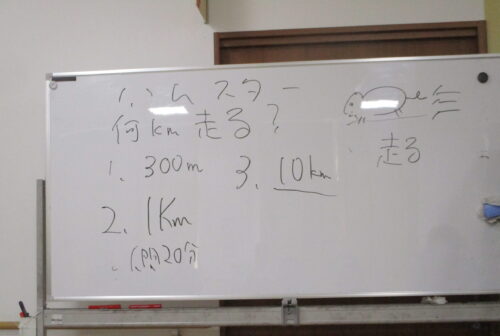 ハムスター
何km走る?
1. 300m
3. 10km
2. 1Km
間20分
走る